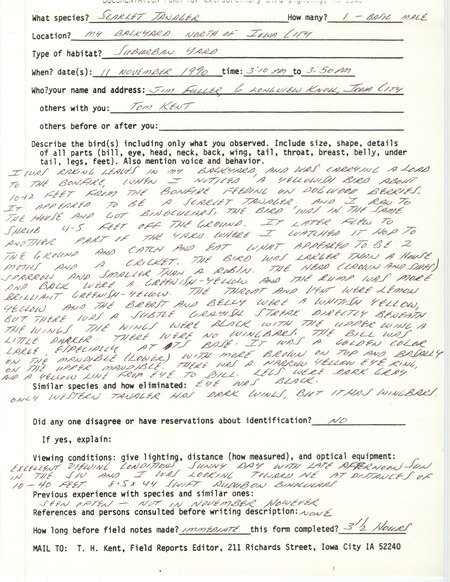 DOCUMENTATION FORM for extraordinary bird sightings in Iowa
What species? SCARLET TANAGER How many? 1 - BASIC MALE
Location? MY BACKYARD NORTH OF IOWA CITY
Type of habitat? SUBURBAN YARD
When? date(s): 11 NOVEMBER 1990 time: 3:10 PM to 3:50 PM
Who?your name and address: JIM FULLER, 6 LONGVIEW KNOLL, IOWA CITY
others with you: TOM KENT
others before or after you:
Describe the bird(s) including only what you observed. Include size, shape, details
of all parts (bill, eye, head, neck, back, wing, tail, throat, breast, belly, under
tail, legs, feet). Also mention voice and behavior.
I WAS RAKING LEAVES IN MY BACKYARD, AND WAS CARRYING A LOAD
TO THE BONFIRE, WHEN I NOTICED A YELLOWISH BIRD ABOUT
10-12 FEET FROM THE BONFIRE FEEDING ON DOGWOOD BERRIES.
IT APPEARED TO BE A SCARLET TANAGER, AND I RAN TO
THE HOUSE AND GOT BINOCULARS. THE BIRD WAS IN THE SAME
SHRUB 4-5 FEET OFF THE GROUND. IT LATER FLEW TO
ANOTHER PART OF THE YARD WHERE I WATCHED IT HOP TO
THE GROUND AND CATCH AND EAT WHAT APPEARED TO BE 2
MOTHS AND A CRICKET. THE BIRD WAS LARGER THAN A HOUSE
SPARROW AND SMALLER THAN A ROBIN. THE HEAD (CROWN AND SIDES)
AND BACK WERE A GREENISH-YELLOW AND THE RUMP WAS MORE
BRILLIANT GREENISH-YELLOW. THE THROAT AND VENT WERE LEMON
YELLOW AND THE BREAST AND BELLY WERE A WHITISH YELLOW,
BUT THERE WAS A SUBTLE GRAYISH STREAK DIRECTLY BENEATH
THE WINGS. THE WINGS WERE BLACK WITH THE UPPER WING A
LITTLE DARKER. THERE WERE NO WINGBARS. THE BILL WAS
LARGE ESPECIALLY AT ITS BASE. IT WAS A GOLDEN COLOR
ON THE MANDIBLE (LOWER) WITH MORE BROWN ON TOP AND BASALLY
ON THE UPPER MANDIBLE. THERE WAS A NARROW YELLOW EYE RING,
AND A YELLOW LINE FROM EYE TO BILL. LEGS WERE DARK GRAY.
Similar species and how eliminated: EYE WAS BLACK.
ONLY WESTERN TANAGER HAS DARK WINGS, BUT IT HAS WINGBARS.
Did any one disagree or have reservations about identification? NO
If yes, explain:
Viewing conditions: give lighting, distance (how measured), and optical equipment:
EXCELLENT VIEWING CONDITIONS SUNNY DAY WITH LATE AFTERNOON SUN
IN THE SW AND I WAS LOOKING TOWARD NE AT DISTANCES OF
10-40 FEET. 8.5 X 44 SWIFT AUDUBON BINOCULARS
Previous experience with species and similar ones:
SEEN OFTEN - NOT IN NOVEMBER HOWEVER
References and persons consulted before writing description: NONE
How long before field notes made? IMMEDIATE this form completed? 3 1/2 HOURS
MAIL TO: T. H. Kent, Field Reports Editor, 211 Richards Street, Iowa City IA 52240